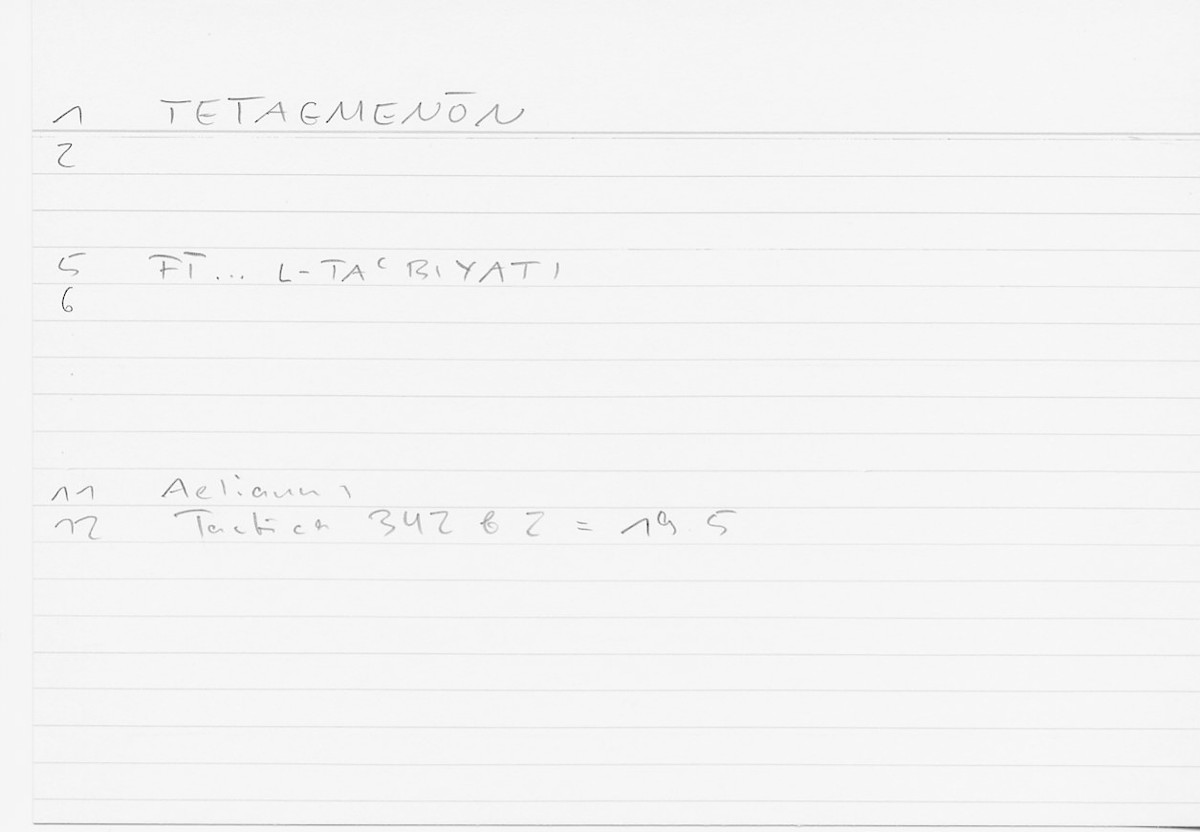 1 TETAGMENŌN
2
5 FĪ... L-TAʿBIYATI
6
11 Aelianus
12 Tactica 342 b 2 = 19 5